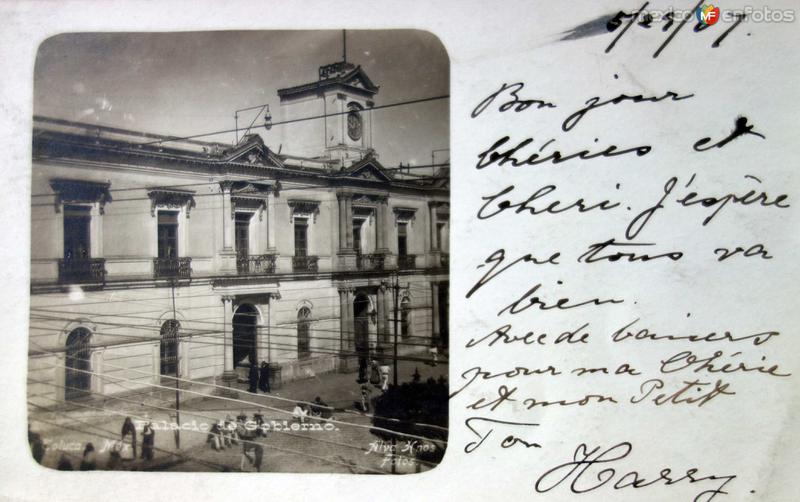 méxicoenfotos
5/29/07.
Bon jour
Chéries et
Cheri. J'espère
que tous va
bien.
Avec de baisers
pour ma Chérie
et mon Petit
Ton
Harry.
Palacio de Gobierno.
Toluca Mex
Alva Hnos
Fotos